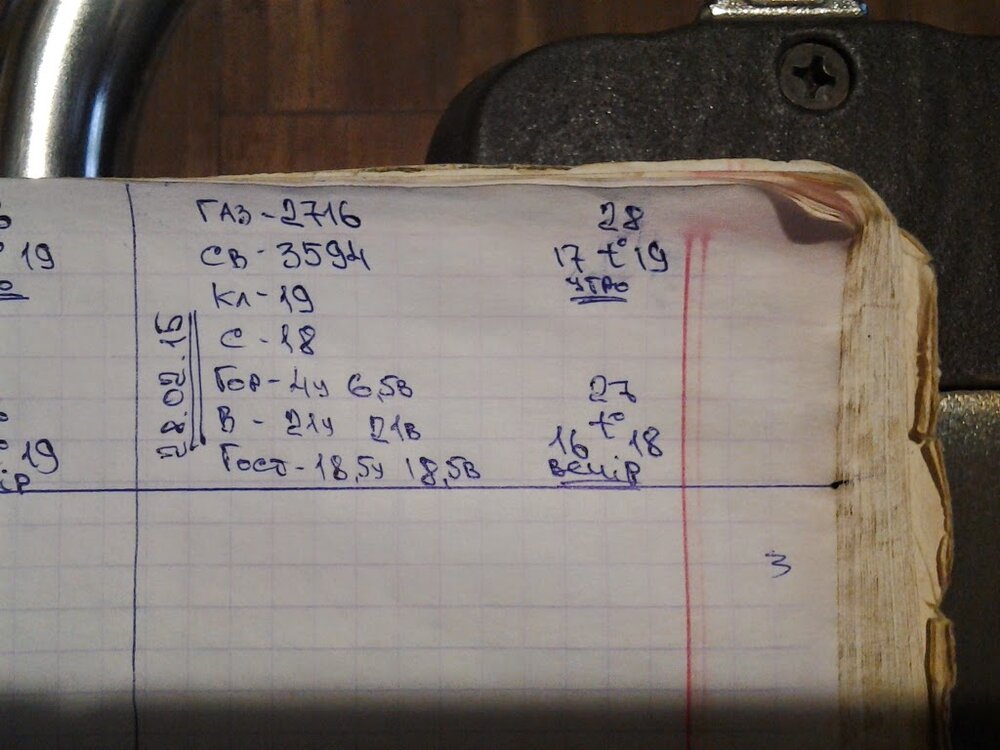 19
ГАЗ-2716
28
СВ-3594
17 t° 19
УТРО
КЛ-19
28.02.15
С-18
ГОР-4у 6,5в
27
В-21у 21в
t°
16 18
ГОСТ-18,5у 18,5в
ВЕЧІР
19
ІР
3